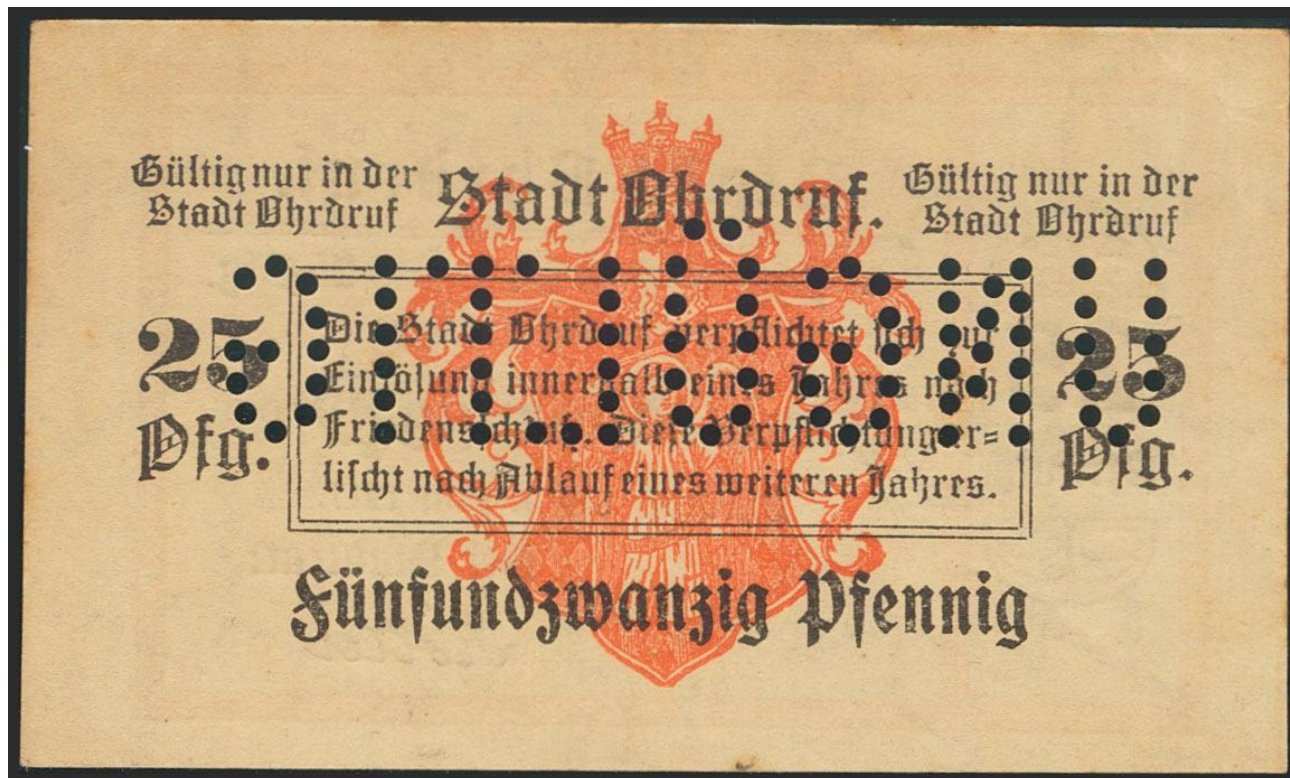 Gültig nur in der
Stadt Ohrdruf
Stadt Ohrdruf.
Gültig nur in der
Stadt Ohrdruf
UNGÜLTIG
25
Pfg.
Die Stadt Ohrdruf verpflichtet sich zur
Einlösung innerhalb eines Jahres nach
Friedensschluß. Diese Verpflichtung er=
lischt nach Ablauf eines weiteren Jahres.
25
Pfg.
Fünfundzwanzig Pfennig